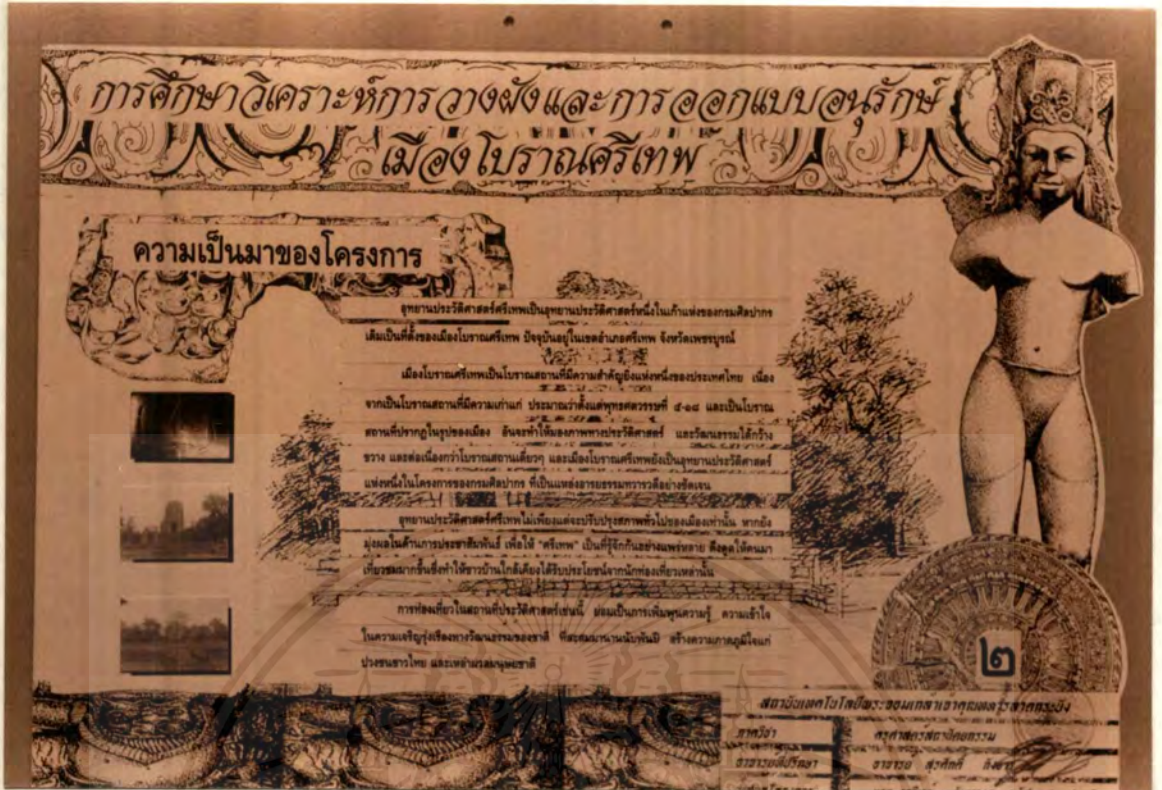 การศึกษาวิเคราะห์การวางผังและการออกแบบอนุรักษ์
เมืองโบราณศรีเทพ
ความเป็นมาของโครงการ
อุทยานประวัติศาสตร์ศรีเทพเป็นอุทยานประวัติศาสตร์หนึ่งในเก้าแห่งของกรมศิลปากร
เดิมเป็นที่ตั้งของเมืองโบราณศรีเทพ ปัจจุบันอยู่ในเขตอำเภอศรีเทพ จังหวัดเพชรบูรณ์
เมืองโบราณศรีเทพเป็นโบราณสถานที่มีความสำคัญยิ่งแห่งหนึ่งของประเทศไทย เนื่อง
จากเป็นโบราณสถานที่มีความเก่าแก่ ประมาณว่าตั้งแต่พุทธศตวรรษที่ ๕-๑๘ และเป็นโบราณ
สถานที่ปรากฏในรูปของเมือง อันจะทำให้มองภาพทางประวัติศาสตร์ และวัฒนธรรมได้กว้าง
ขวาง และต่อเนื่องกว่าโบราณสถานเดี่ยวๆ และเมืองโบราณศรีเทพยังเป็นอุทยานประวัติศาสตร์
แห่งหนึ่งในโครงการของกรมศิลปากร ที่เป็นแหล่งอารยธรรมทวารวดีอย่างชัดเจน
อุทยานประวัติศาสตร์ศรีเทพไม่เพียงแต่จะปรับปรุงสภาพทั่วไปของเมืองเท่านั้น หากยัง
มุ่งผลในด้านการประชาสัมพันธ์ เพื่อให้ "ศรีเทพ" เป็นที่รู้จักกันอย่างแพร่หลาย ดึงดูดให้คนมา
เที่ยวชมมากขึ้นซึ่งทำให้ชาวบ้านใกล้เคียงได้รับประโยชน์จากนักท่องเที่ยวเหล่านั้น
การท่องเที่ยวในสถานที่ประวัติศาสตร์เช่นนี้ ย่อมเป็นการเพิ่มพูนความรู้ ความเข้าใจ
ในความเจริญรุ่งเรืองทางวัฒนธรรมของชาติ ที่สะสมมานานนับพันปี สร้างความภาคภูมิใจแก่
ปวงชนชาวไทย และเหล่ามวลมนุษยชาติ
๒
สถาบันเทคโนโลยีพระจอมเกล้าเจ้าคุณทหารลาดกระบัง
ภาควิชา ครุศาสตร์สถาปัตยกรรม
อาจารย์ที่ปรึกษา อาจารย์ สุรศักดิ์